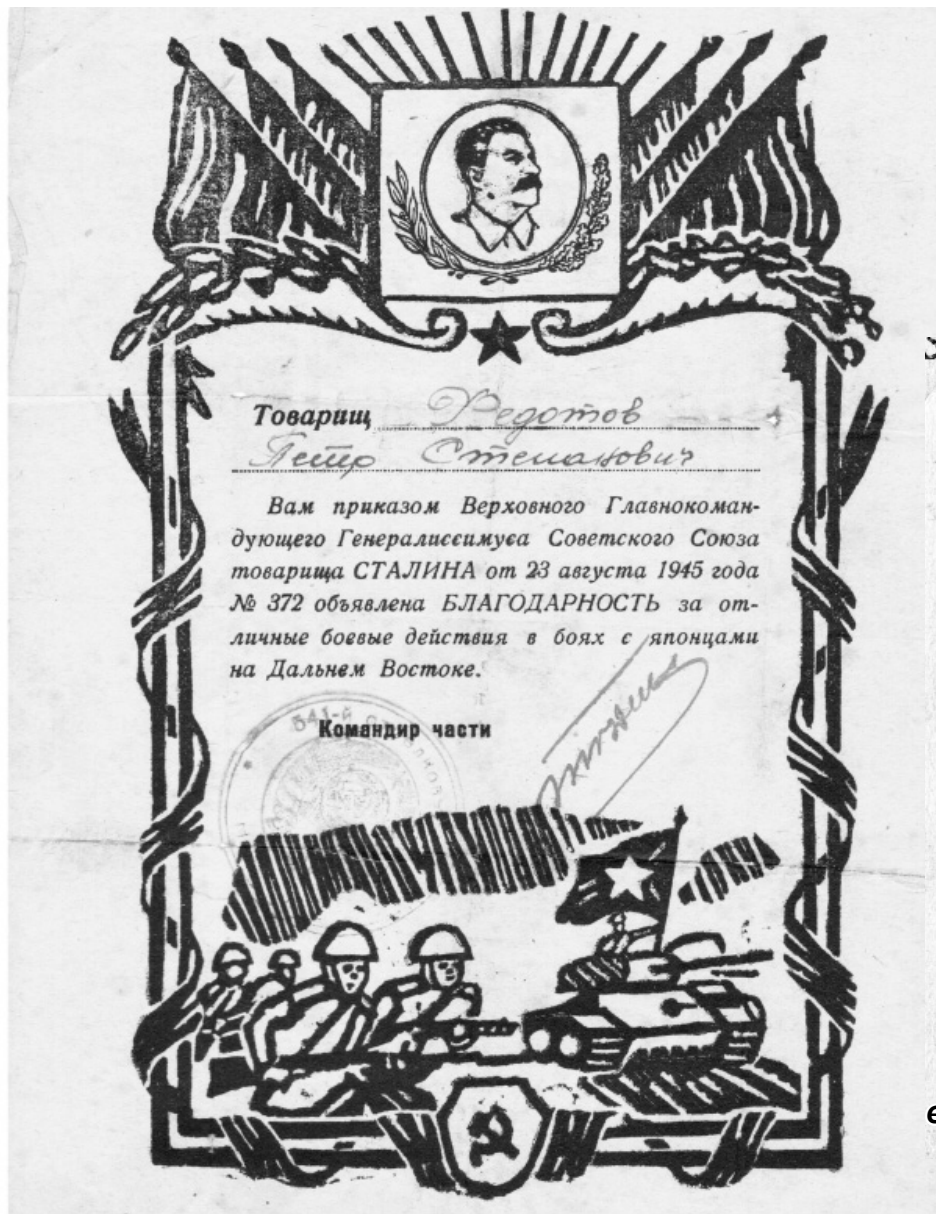 Товарищ Федотов
Петр Степанович
Вам приказом Верховного Главнокоман-
дующего Генералиссимуса Советского Союза
товарища СТАЛИНА от 23 августа 1945 года
№ 372 объявлена БЛАГОДАРНОСТЬ за от-
личные боевые действия в боях с японцами
на Дальнем Востоке.
Командир части